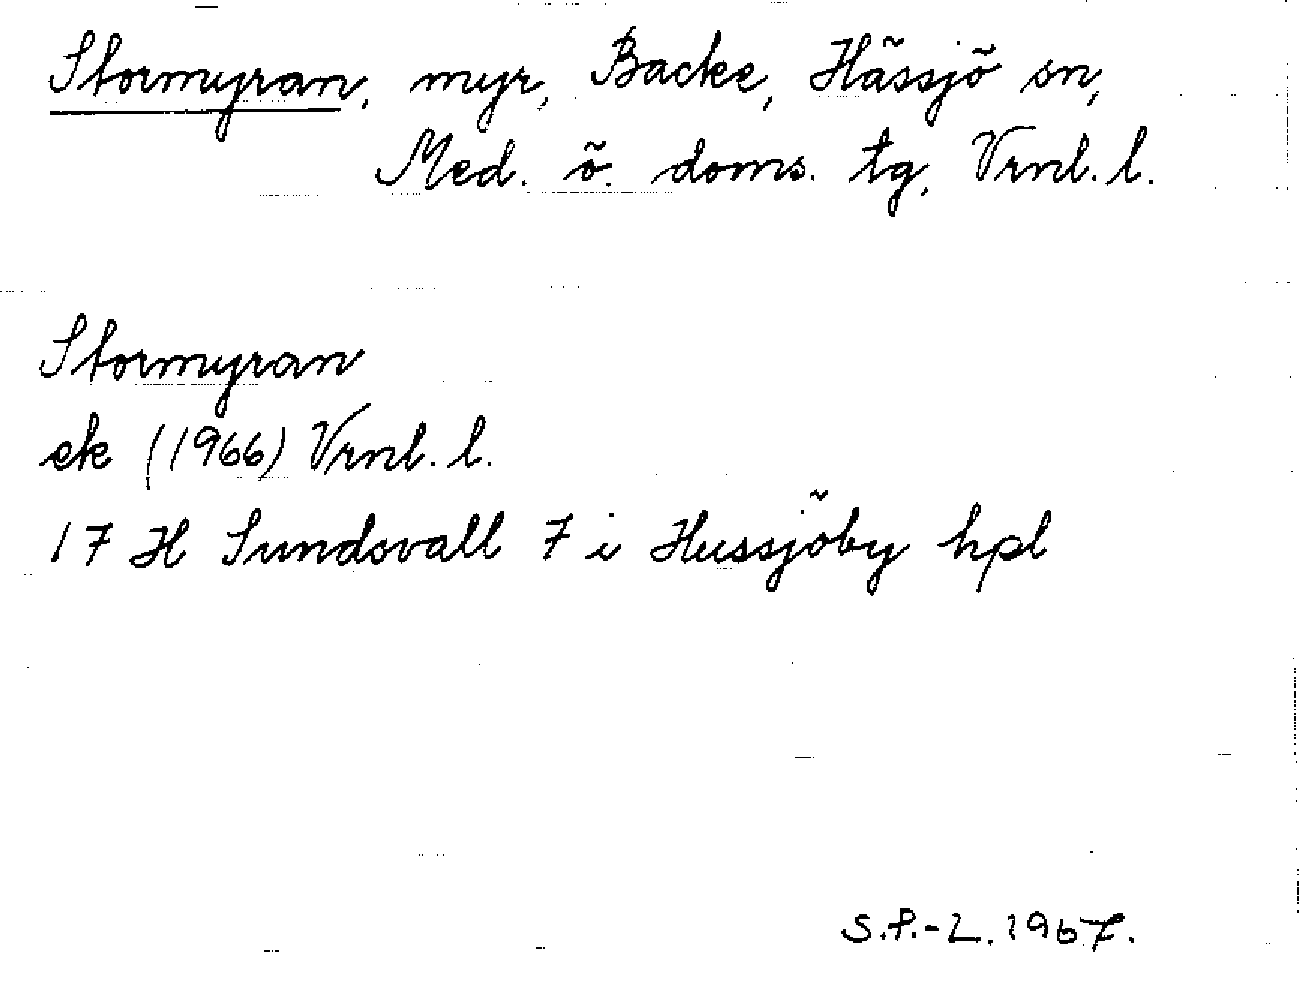 Stormyran, myr, Backe, Hässjö sn,
Med. ö. doms. tg, Vrnl. l.
Stormyran
ek (1966) Vrnl. l.
17 H Sundsvall 7 i Hussjöby hpl
S.P.-L. 1967.